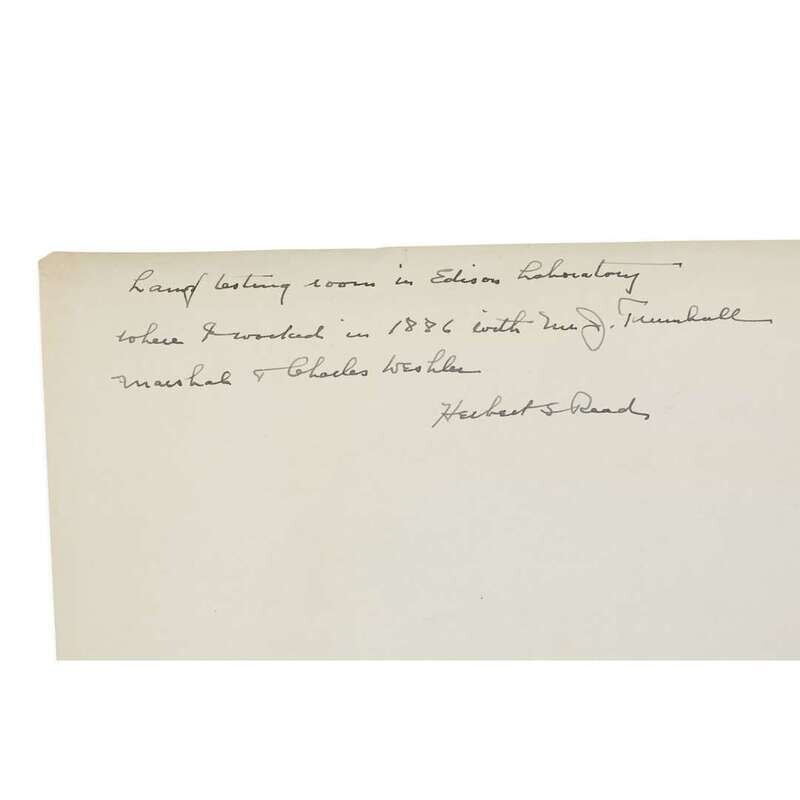 Lamp testing room in Edison Laboratory
where I worked in 1886 with Mr J. Trumbull
Marshall & Charles Weshler
Herbert S Read